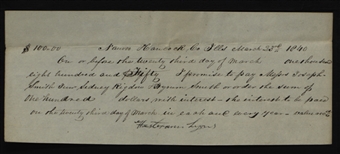 $100.00 Nauvoo Hancock Co Ills. March 23d 1840
On or before the twenty third day of March one thousand
eight hundred and fifty I promise to pay Joseph
Smith Jun Sidney Rigdon Hyrum Smith or order the sum of
One hundred dollars, with interest – the interest to be paid
on the twenty third day of March in each and every year